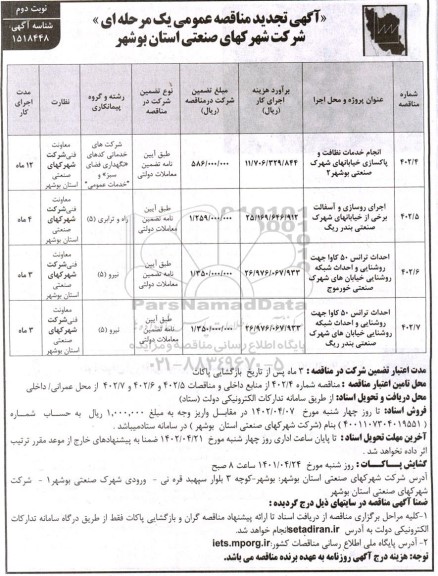 نوبت دوم
شناسه آگهی:
۱۵۱۸۴۴۸
«آگهی تجدید مناقصه عمومی یک مرحله ای»
شرکت شهرکهای صنعتی استان بوشهر
شماره مناقصه
عنوان پروژه و محل اجرا
برآورد هزینه اجرای کار (ریال)
مبلغ تضمین شرکت درمناقصه (ریال)
نوع تضمین شرکت در مناقصه
رشته و گروه پیمانکاری
نظارت
مدت اجرای کار
۴۰۲/۴
انجام خدمات نظافت و پاکسازی خیابانهای شهرک صنعتی بوشهر۲
۱۱/۷۰۶/۳۲۹/۸۴۴
۵۸۶/۰۰۰/۰۰۰
طبق آیین نامه تضمین معاملات دولتی
شرکت های خدماتی کدهای «نگهداری فضای سبز» و "خدمات عمومی"
معاونت فنی شرکت شهرکهای صنعتی استان بوشهر
۱۲ ماه
۴۰۲/۵
اجرای روسازی و آسفالت برخی از خیابانهای شهرک صنعتی بندر ریگ
۲۵/۱۶۹/۶۴۶/۹۱۲
۱/۲۵۹/۰۰۰/۰۰۰
طبق آیین نامه تضمین معاملات دولتی
راه و ترابری (۵)
معاونت فنی شرکت شهرکهای صنعتی استان بوشهر
۴ ماه
۴۰۲/۶
احداث ترانس ۵۰ کاوا جهت روشنایی و احداث شبکه روشنایی خیابان های شهرک صنعتی خورموج
۲۶/۹۷۶/۰۶۷/۹۳۳
۱/۳۵۰/۰۰۰/۰۰۰
طبق آیین نامه تضمین معاملات دولتی
نیرو (۵)
معاونت فنی شرکت شهرکهای صنعتی استان بوشهر
۳ ماه
۴۰۲/۷
احداث ترانس ۵۰ کاوا جهت روشنایی و احداث شبکه روشنایی خیابان های شهرک صنعتی بندر ریگ
۲۶/۹۷۶/۰۶۷/۹۳۳
۱/۳۵۰/۰۰۰/۰۰۰
طبق آیین نامه تضمین معاملات دولتی
نیرو (۵)
معاونت فنی شرکت شهرکهای صنعتی استان بوشهر
۳ ماه
ParsNamadData
پایگاه اطلاع رسانی مناقصه و مزایده
۰۲۱-۸۸۳۴۹۶۷۰-۵
مدت اعتبار تضمین شرکت در مناقصه : ۳ ماه پس از تاریخ بازگشایی پاکات
محل تامین اعتبار مناقصه : مناقصه شماره ۴۰۲/۴ از منابع داخلی و مناقصات ۴۰۲/۵ و ۴۰۲/۶ و ۴۰۲/۷ از محل عمرانی/ داخلی
محل دریافت و تحویل اسناد: از طریق سامانه تدارکات الکترونیکی دولت (ستاد)
فروش اسناد: تا روز چهار شنبه مورخ ۱۴۰۲/۰۴/۰۷ در مقابل واریز وجه به مبلغ ۱,۰۰۰,۰۰۰ ریال به حساب شماره
(۴۰۰۱۱۰۷۳۰۴۰۱۹۵۵۱) بنام (شرکت شهرکهای صنعتی استان بوشهر) در سامانه ستادمیباشد.
آخرین مهلت تحویل اسناد : تا پایان ساعت اداری روز چهار شنبه مورخ ۱۴۰۲/۰۴/۲۱ ضمنا به پیشنهادهای خارج از موعد مقرر ترتیب
اثر داده نخواهد شد.
گشایش پـــاکـــات : روز شنبه مورخ ۱۴۰۱/۰۴/۲۴ ساعت ۸ صبح
آدرس شرکت شهرکهای صنعتی استان بوشهر: بوشهر-کوچه ۳ بلوار سپهبد قره نی - ورودی شهرک صنعتی بوشهر۱ - شرکت
شهرکهای صنعتی استان بوشهر
ضمنا آگهی مناقصه در سایتهای ذیل درج گردیده :
۱-کلیه مراحل برگزاری مناقصه از دریافت اسناد تا ارائه پیشنهاد مناقصه گران و بازگشایی پاکات فقط از طریق درگاه سامانه تدارکات
الکترونیکی دولت به آدرس setadiran.ir انجام خواهد شد.
۲- آدرس پایگاه ملی اطلاع رسانی مناقصات کشور: iets.mporg.ir
توجه: هزینه درج آگهی روزنامه به عهده برنده مناقصه می باشد.